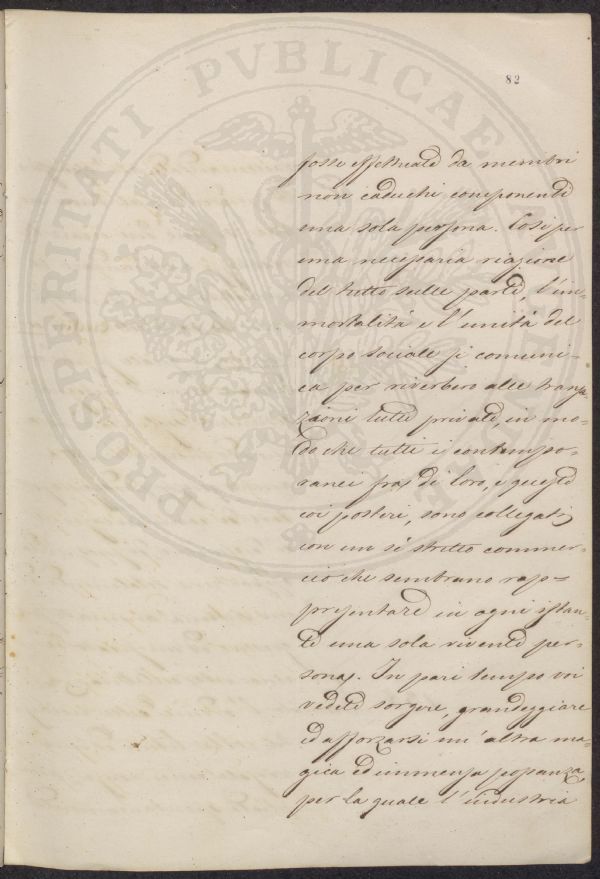 82
fosse effettuata da membri
non caduchi componendi
una sola persona. Così per
una necessaria riazione
del tutto sulle parti, l'im-
mortalità e l'unità del
corpo sociale si comuni-
ca per riverbero alle transa-
zioni tutte private, in mo-
do che tutti i contempo-
ranei fra di loro, e questi
coi posteri, sono collegati
con un sì stretto commer-
cio che sembrano rap=
presentare in ogni istan-
te una sola vivente per-
sona. In pari tempo voi
vedete sorgere, grandeggiare
ed afforzarsi un'altra ma-
gica ed immensa possanza,
per la quale l'industria
PROSPERITATI PVBLICAE